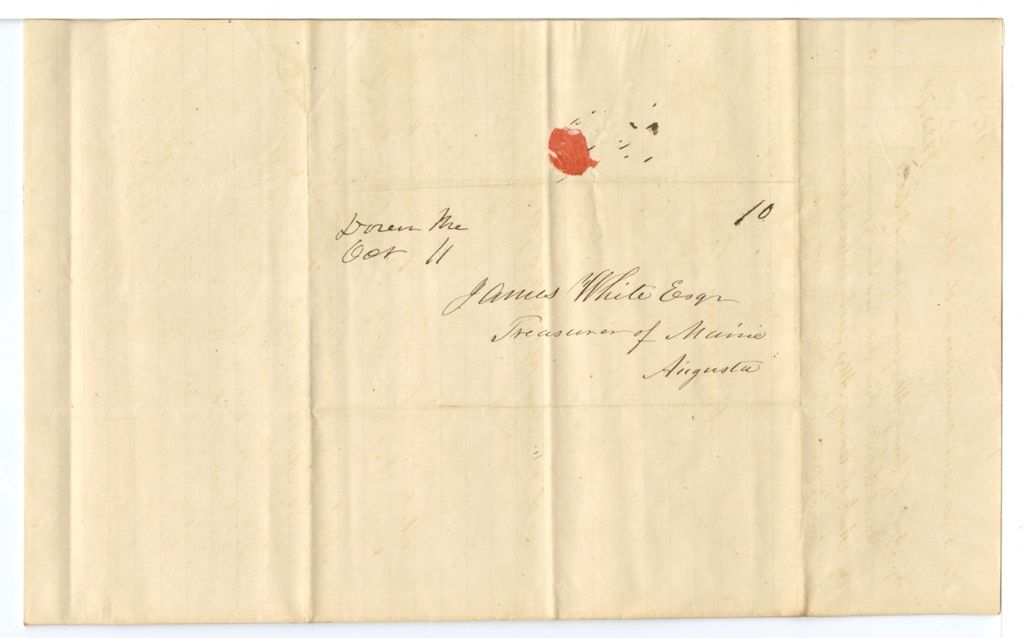 Me
10
Oct 11
James White Esqr
Treasurer of Maine
Augusta